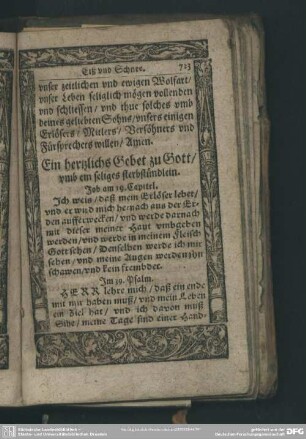 Eiß vnd Schnee. 713
vnser zeitlichen vnd ewigen Wolfart/
vnser Leben seliglich mögen vollenden
vnd schliessen/ vnd thue solches vmb
deines geliebten Sohns/ vnsers einigen
Erlösers/ Mitlers/ Versöhners vnd
Fürsprechers willen/ Amen.
Ein hertzlichs Gebet zu Gott/
vmb ein seliges sterbstündlein.
Job am 19. Capitel.
Ich weis/ daß mein Erlöser lebet/
vnd er wird mich hernach aus der Er-
den aufferwecken/ vnd werde darnach
mit dieser meiner Haut vmbgeben
werden/ vnd werde in meinem Fleisch
Gott sehen/ Denselben werde ich mir
sehen/ vnd meine Augen werden jhn
schawen/ vnd kein frembder.
Im 39. Psalm.
HERR lehre mich/ daß ein ende
mit mir haben muß/ vnd mein Leben
ein Ziel hat/ vnd ich davon muß
Sihe/ meine Tage sind einer Hand-